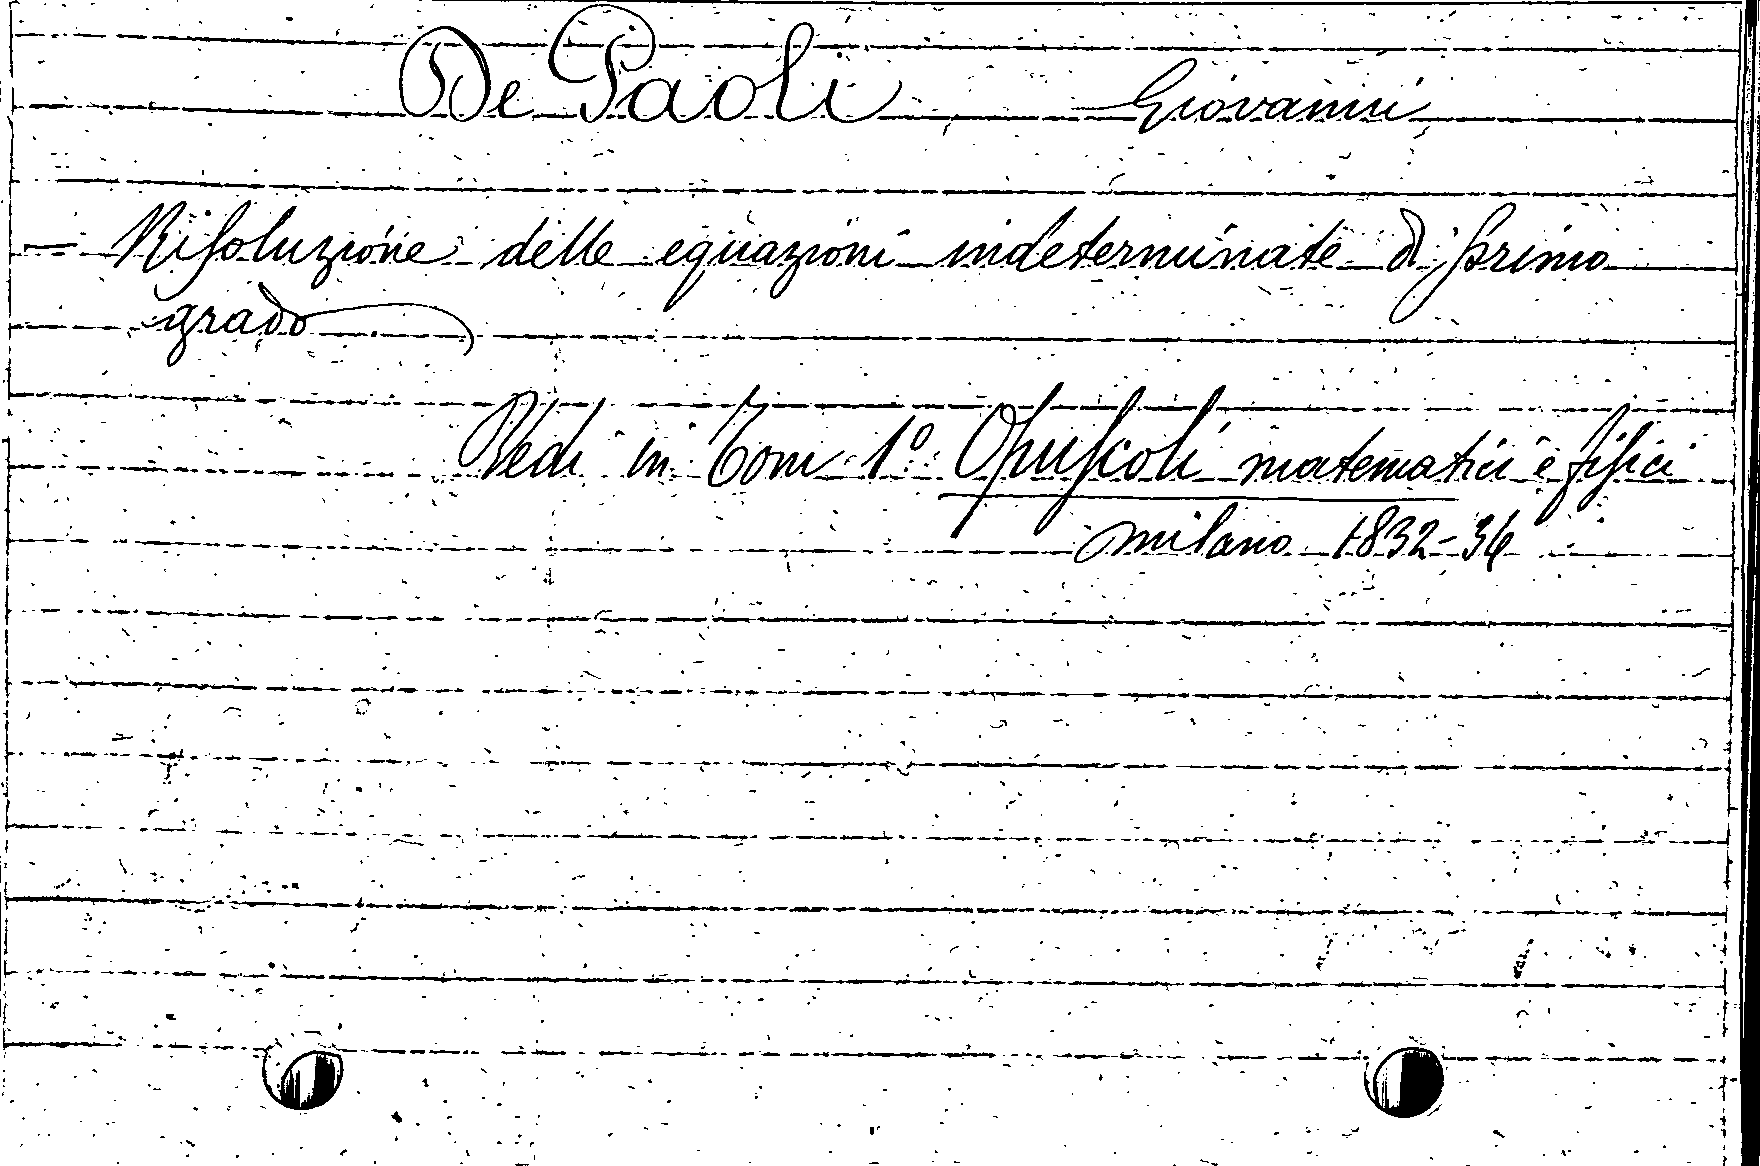 De Paoli, Giovanni,
— Riſoluzione delle equazioni indeterminate di primo
grado
Vedi in Tom 1º Opuſcoli matematici e fiſici
milano 1832-36